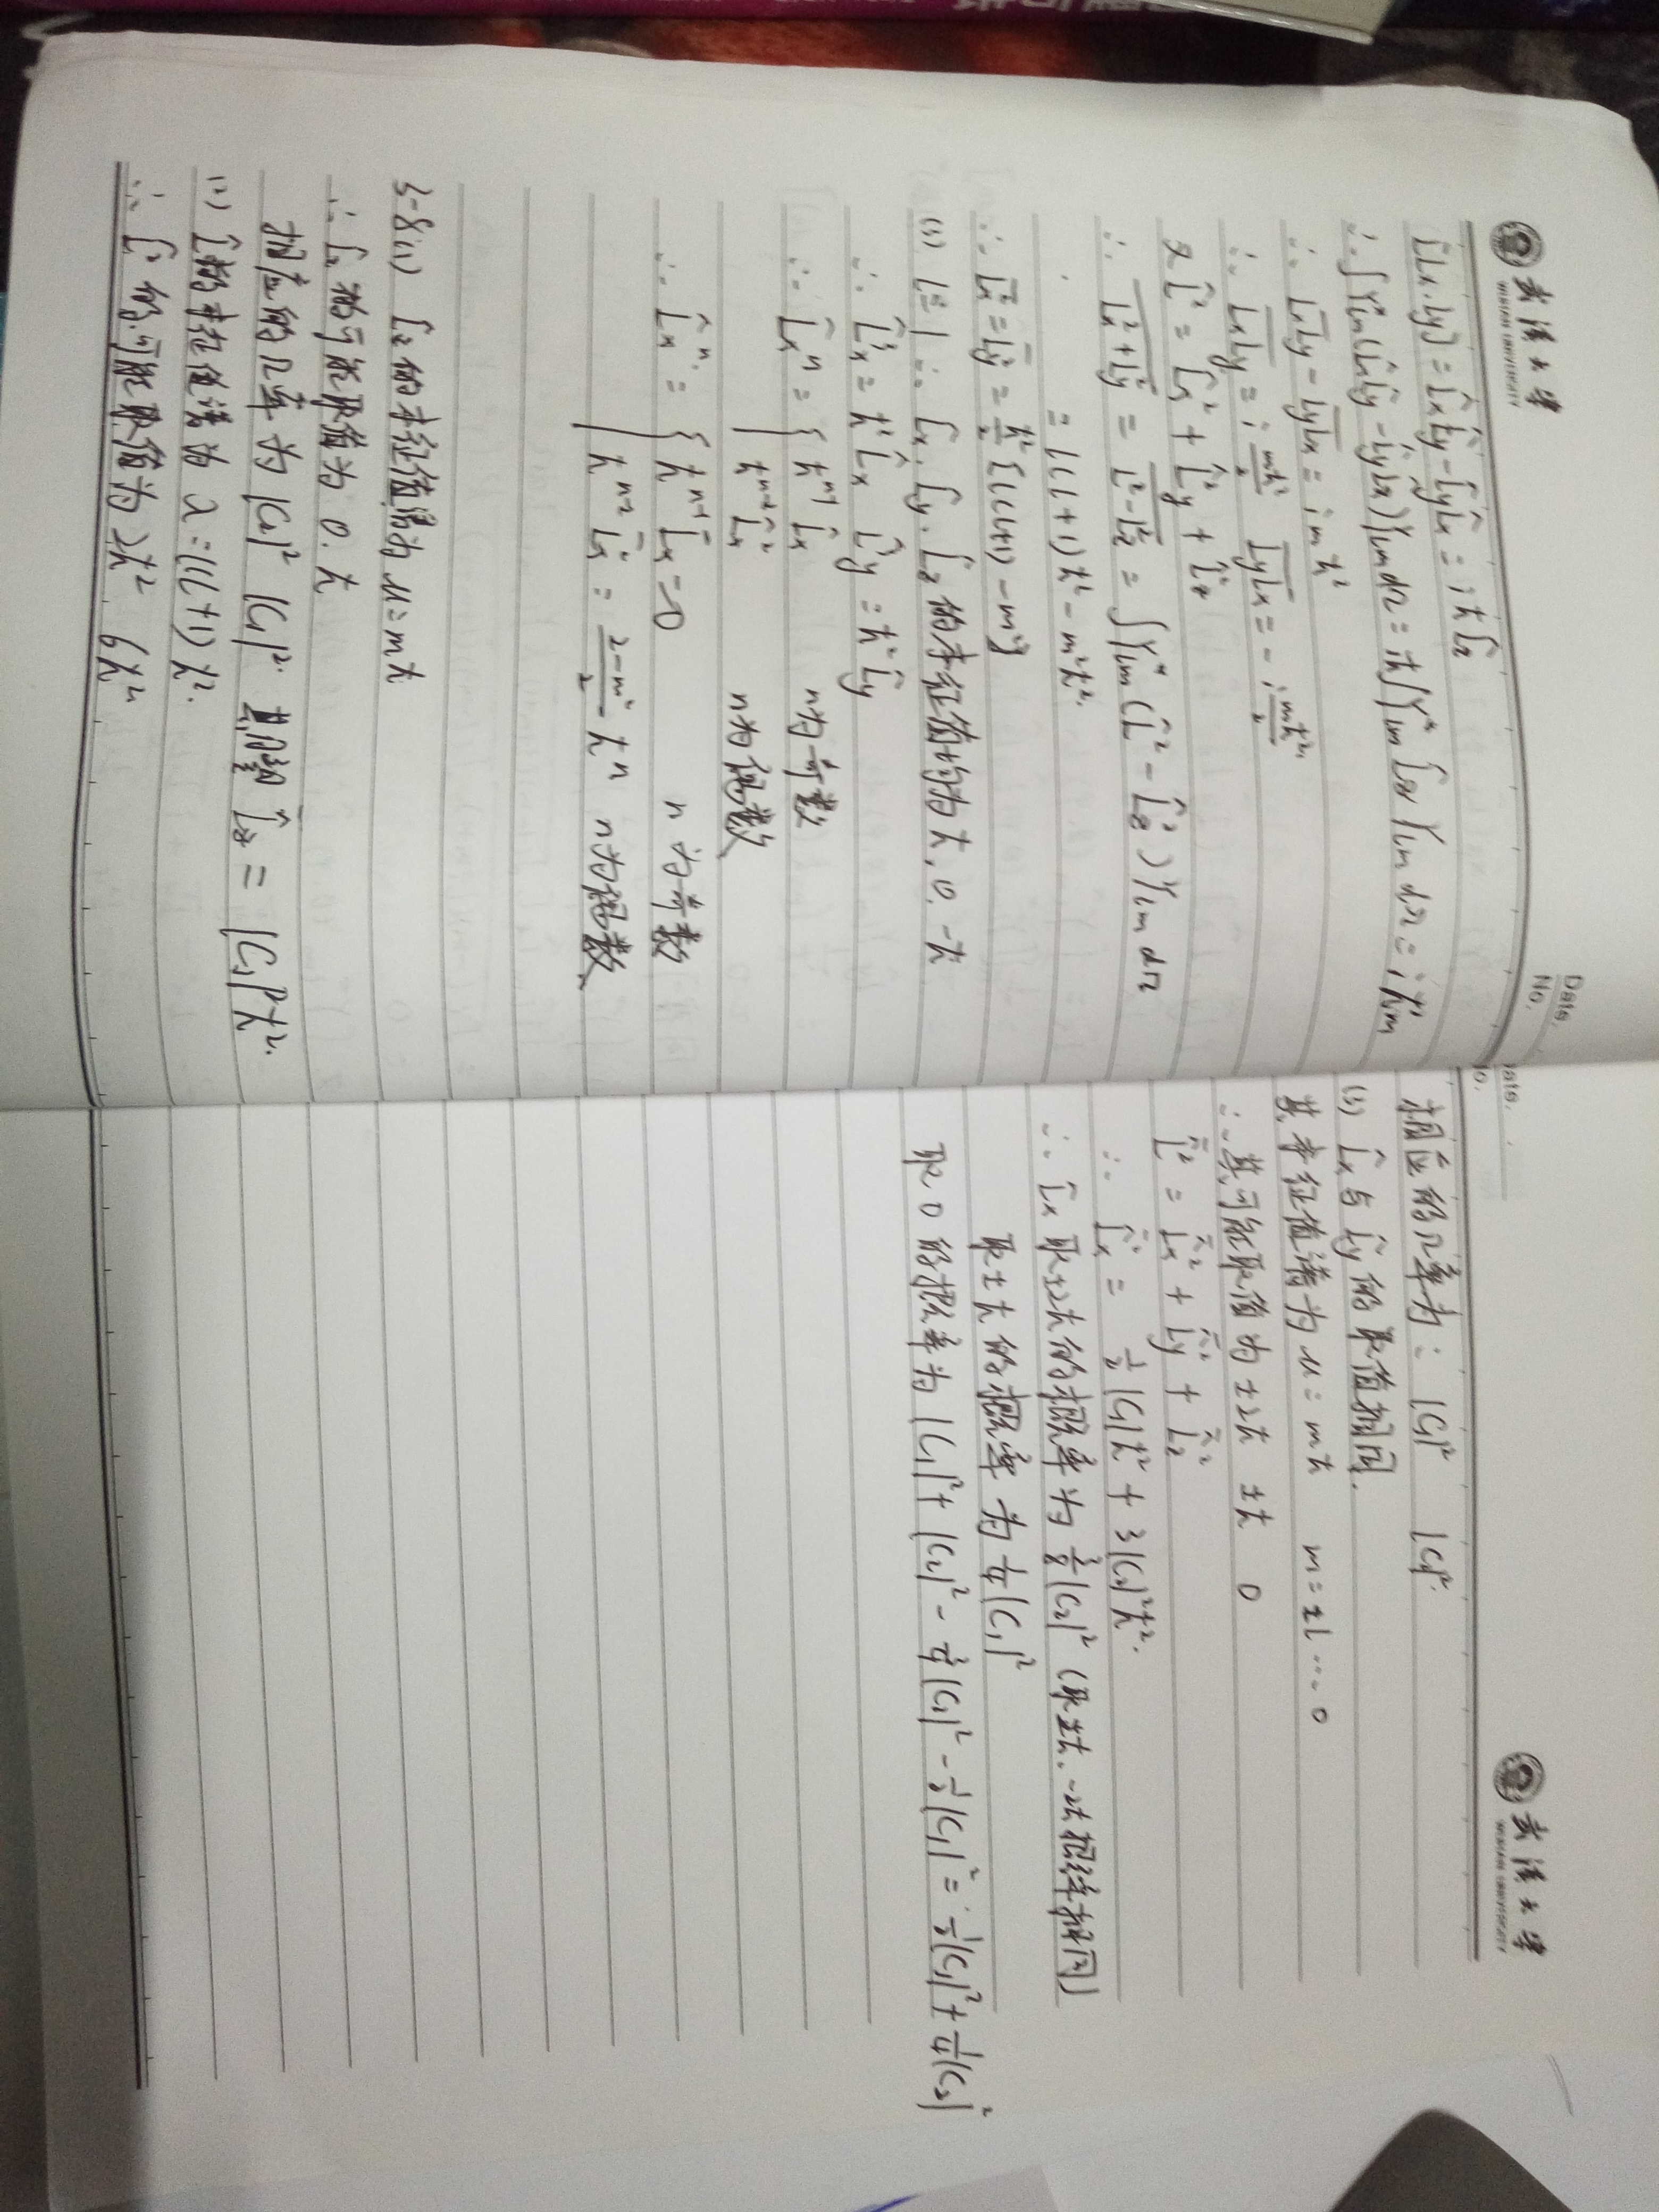 武汉大学
WUHAN UNIVERSITY
Date.
No.
[Lx,Ly] = L̂xL̂y - L̂yL̂x = iħL̂z
∴ ∫Y*lm(L̂xL̂y - L̂yL̂x)Ylm dΩ = iħ∫Y*lm L̂z Ylm dΩ = iħ²m
∴ LxLy - LyLx = imħ²
∴ LxLy = i mħ²/2 LyLx = - imħ²/2
又 L̂² = L̂x² + L̂y² + L̂z²
∴ Lx²+Ly² = L²-Lz² = ∫Y*lm (L̂² - L̂z²) Ylm dΩ
= l(l+1)ħ² - m²ħ².
∴ Lx² = Ly² = ħ²/2 [l(l+1) - m²]
(3) l=1 ∴ L̂x. L̂y. L̂z 的本征值均为 ħ, 0. -ħ
∴ L̂x³ = ħ²L̂x L̂y³ = ħ²L̂y
∴ L̂xⁿ = { ħⁿ⁻¹ L̂x n为奇数
ħⁿ⁻² L̂x² n为偶数
∴ L̂xⁿ = { ħⁿ⁻¹ Lx = 0 n为奇数
ħⁿ⁻² Lx² = (2-m²)/2 ħⁿ n为偶数
3-8 (1) L̂z 的本征值谱为 μ=mħ
∴ L̂z 的可能取值为 0. ħ
相应的几率为 |C₂|² |C₁|². 期望 L̂z = |C₁|²ħ².
(2) L̂²的本征值谱为 λ=l(l+1)ħ².
∴ L̂² 的可能取值为 2ħ² 6ħ²
武汉大学
WUHAN UNIVERSITY
Date.
No.
相应的几率为: |C₁|² |C₂|².
(3) L̂x与L̂y 的取值相同.
其本征值谱为 μ=mħ m=±l ... 0
∴ 其可能取值为 ±2ħ ±ħ 0
L² = Lx² + Ly² + Lz²
∴ Lx² = ½|C₁|ħ² + 3|C₂|²ħ².
∴ L̂x 取±2ħ的概率为 3/8|C₂|² (取±ħ.-2ħ概率相同)
取±ħ的概率为 ¼|C₁|²
取0的概率为 |C₁|²+|C₂|² - ¾|C₂|² - ½|C₁|² = ½|C₁|²+¼|C₂|²